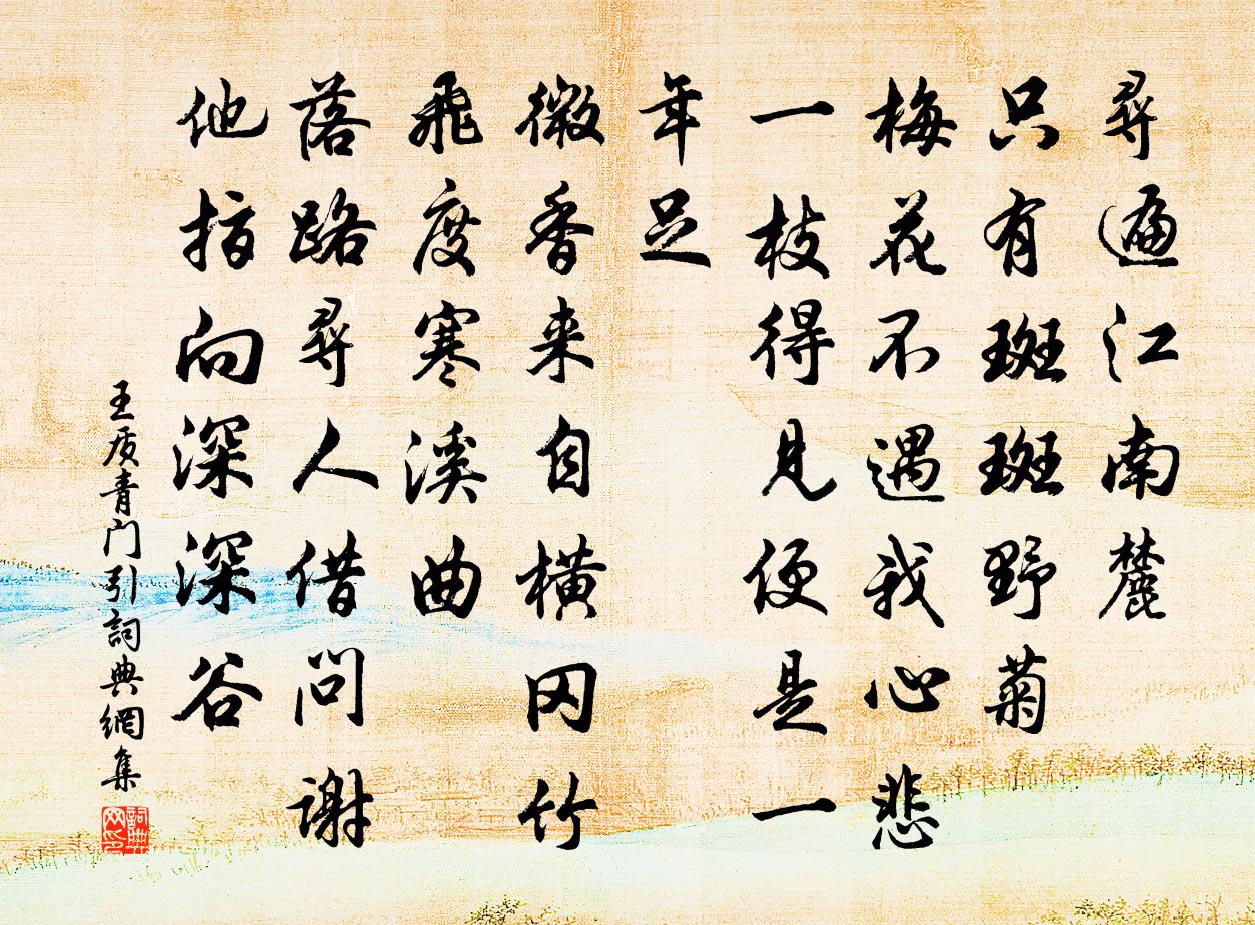 尋遍江南麓
只有斑斑野菊
梅花不遇我心悲
一枝得見便是一
年足
微香来自横冈竹
飛度寒溪曲
落路尋人借问谢
他指向深深谷
王质青门引詞典網集
詞典网印